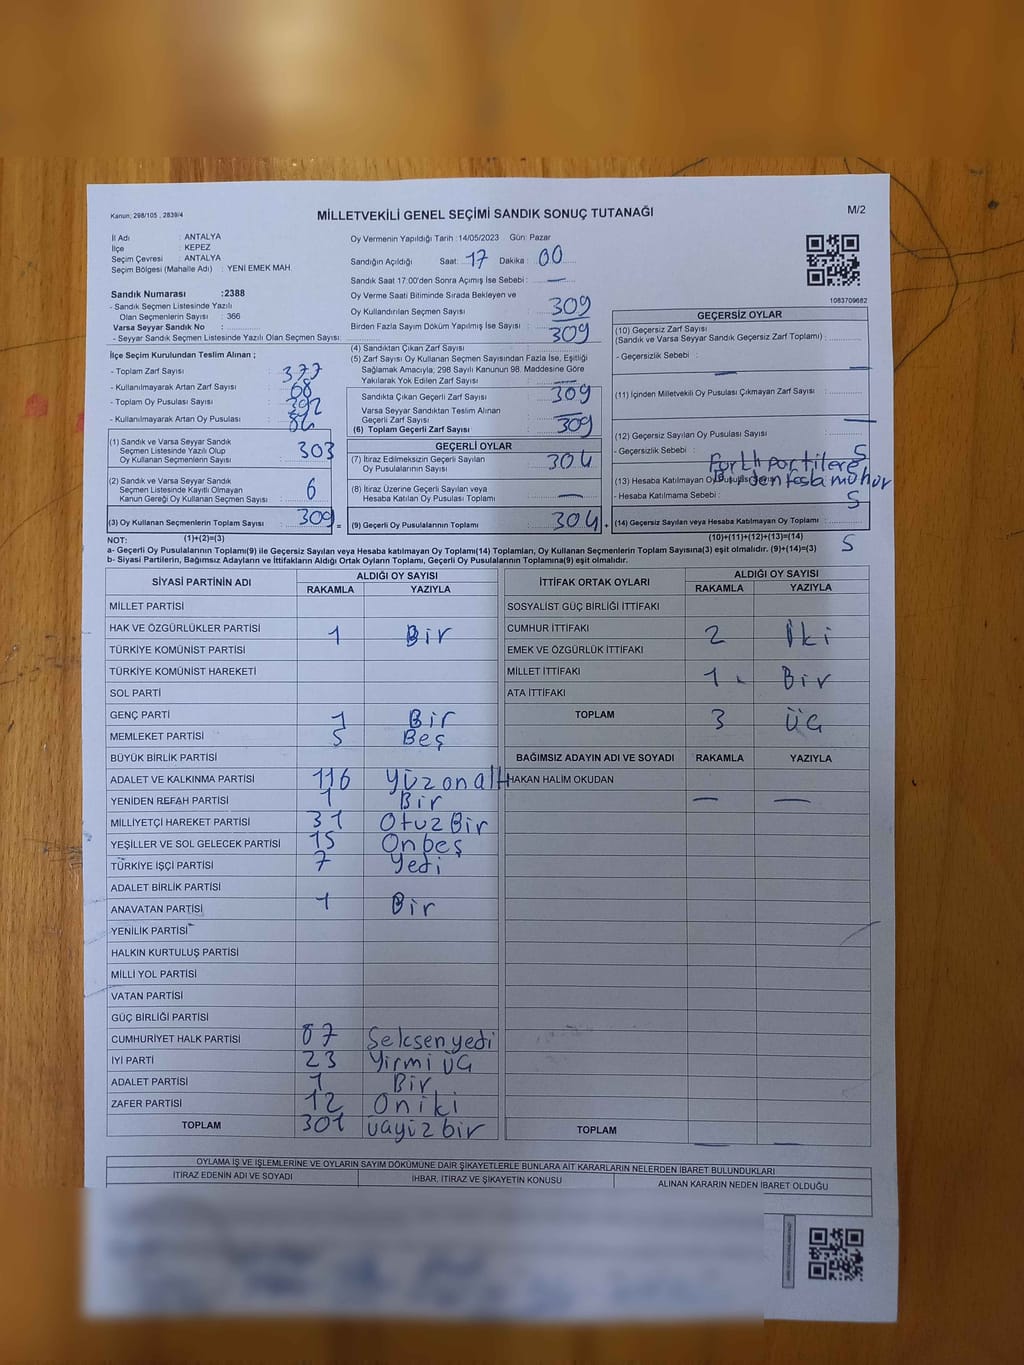 Kanun; 298/105 , 2839/4
MİLLETVEKİLİ GENEL SEÇİMİ SANDIK SONUÇ TUTANAĞI
M/2
İl Adı : ANTALYA
İlçe : KEPEZ
Seçim Çevresi : ANTALYA
Seçim Bölgesi (Mahalle Adı) : YENİ EMEK MAH.
Sandık Numarası :2388
- Sandık Seçmen Listesinde Yazılı
Olan Seçmenlerin Sayısı : 366
Varsa Seyyar Sandık No :
- Seyyar Sandık Seçmen Listesinde Yazılı Olan Seçmen Sayısı:
İlçe Seçim Kurulundan Teslim Alınan ;
- Toplam Zarf Sayısı : 377
- Kullanılmayarak Artan Zarf Sayısı : 68
- Toplam Oy Pusulası Sayısı : 392
- Kullanılmayarak Artan Oy Pusulası :
(1) Sandık ve Varsa Seyyar Sandık
Seçmen Listesinde Yazılı Olup
Oy Kullanan Seçmenlerin Sayısı : 303
(2) Sandık ve Varsa Seyyar Sandık
Seçmen Listesinde Kayıtlı Olmayan
Kanun Gereği Oy Kullanan Seçmen Sayısı : 6
(3) Oy Kullanan Seçmenlerin Toplam Sayısı : 309 =
(1)+(2)=(3)
Oy Vermenin Yapıldığı Tarih : 14/05/2023 Gün: Pazar
Sandığın Açıldığı Saat: 17 Dakika : 00
Sandık Saat 17:00'den Sonra Açımış İse Sebebi : —
Oy Verme Saati Bitiminde Sırada Bekleyen ve
Oy Kullandırılan Seçmen Sayısı : 309
Birden Fazla Sayım Döküm Yapılmış İse Sayısı : 309
(4) Sandıktan Çıkan Zarf Sayısı :
(5) Zarf Sayısı Oy Kullanan Seçmen Sayısından Fazla İse, Eşitliği
Sağlamak Amacıyla; 298 Sayılı Kanunun 98. Maddesine Göre
Yakılarak Yok Edilen Zarf Sayısı : —
Sandıkta Çıkan Geçerli Zarf Sayısı : 309
Varsa Seyyar Sandıktan Teslim Alınan
Geçerli Zarf Sayısı : —
(6) Toplam Geçerli Zarf Sayısı : 309
GEÇERLİ OYLAR
(7) İtiraz Edilmeksizin Geçerli Sayılan
Oy Pusulalarının Sayısı : 304
(8) İtiraz Üzerine Geçerli Sayılan veya
Hesaba Katılan Oy Pusulası Toplamı : —
(9) Geçerli Oy Pusulalarının Toplamı : 304 +
1083709682
GEÇERSİZ OYLAR
(10) Geçersiz Zarf Sayısı
(Sandık ve Varsa Seyyar Sandık Geçersiz Zarf Toplamı) :
- Geçersizlik Sebebi : —
(11) İçinden Milletvekili Oy Pusulası Çıkmayan Zarf Sayısı : —
(12) Geçersiz Sayılan Oy Pusulası Sayısı : 5
- Geçersizlik Sebebi : Farklı partilere
Birden fazla mühür
(13) Hesaba Katılmayan Oy Pusulası Sayısı
- Hesaba Katılmama Sebebi : 5
(14) Geçersiz Sayılan veya Hesaba Katılmayan Oy Toplamı : 5
(10)+(11)+(12)+(13)=(14)
NOT:
a- Geçerli Oy Pusulaları Toplamı(9) ile Geçersiz Sayılan veya Hesaba katılmayan Oy Toplamı(14) Toplamları, Oy Kullanan Seçmenlerin Toplam Sayısına(3) eşit olmalıdır. (9)+(14)=(3)
b- Siyasi Partilerin, Bağımsız Adayların ve İttifakların Aldığı Ortak Oyların Toplamı, Geçerli Oy Pusulalarının Toplamına(9) eşit olmalıdır.
SİYASİ PARTİNİN ADI ALDIĞI OY SAYISI
RAKAMLA YAZIYLA
MİLLET PARTİSİ
HAK VE ÖZGÜRLÜKLER PARTİSİ 1 Bir
TÜRKİYE KOMÜNİST PARTİSİ
TÜRKİYE KOMÜNİST HAREKETİ
SOL PARTİ
GENÇ PARTİ 1 Bir
MEMLEKET PARTİSİ 5 Beş
BÜYÜK BİRLİK PARTİSİ
ADALET VE KALKINMA PARTİSİ 116 Yüzonaltı
YENİDEN REFAH PARTİSİ 1 Bir
MİLLİYETÇİ HAREKET PARTİSİ 31 Otuz Bir
YEŞİLLER VE SOL GELECEK PARTİSİ 15 Onbeş
TÜRKİYE İŞÇİ PARTİSİ 7 Yedi
ADALET BİRLİK PARTİSİ
ANAVATAN PARTİSİ 1 Bir
YENİLİK PARTİSİ
HALKIN KURTULUŞ PARTİSİ
MİLLİ YOL PARTİSİ
VATAN PARTİSİ
GÜÇ BİRLİĞİ PARTİSİ
CUMHURİYET HALK PARTİSİ 87 Seksenyedi
İYİ PARTİ 23 Yirmi üç
ADALET PARTİSİ 1 Bir
ZAFER PARTİSİ 12 Oniki
TOPLAM 301 üçyüzbir
İTTİFAK ORTAK OYLARI ALDIĞI OY SAYISI
RAKAMLA YAZIYLA
SOSYALİST GÜÇ BİRLİĞİ İTTİFAKI
CUMHUR İTTİFAKI 2 İki
EMEK VE ÖZGÜRLÜK İTTİFAKI
MİLLET İTTİFAKI 1 Bir
ATA İTTİFAKI
TOPLAM 3 Üç
BAĞIMSIZ ADAYIN ADI VE SOYADI RAKAMLA YAZIYLA
HAKAN HALİM OKUDAN — —
TOPLAM — —
OYLAMA İŞ VE İŞLEMLERİNE VE OYLARIN SAYIM DÖKÜMÜNE DAİR ŞİKAYETLERLE BUNLARA AİT KARARLARIN NELERDEN İBARET BULUNDUKLARI
İTİRAZ EDENİN ADI VE SOYADI İHBAR, İTİRAZ VE ŞİKAYETİN KONUSU ALINAN KARARIN NEDEN İBARET OLDUĞU